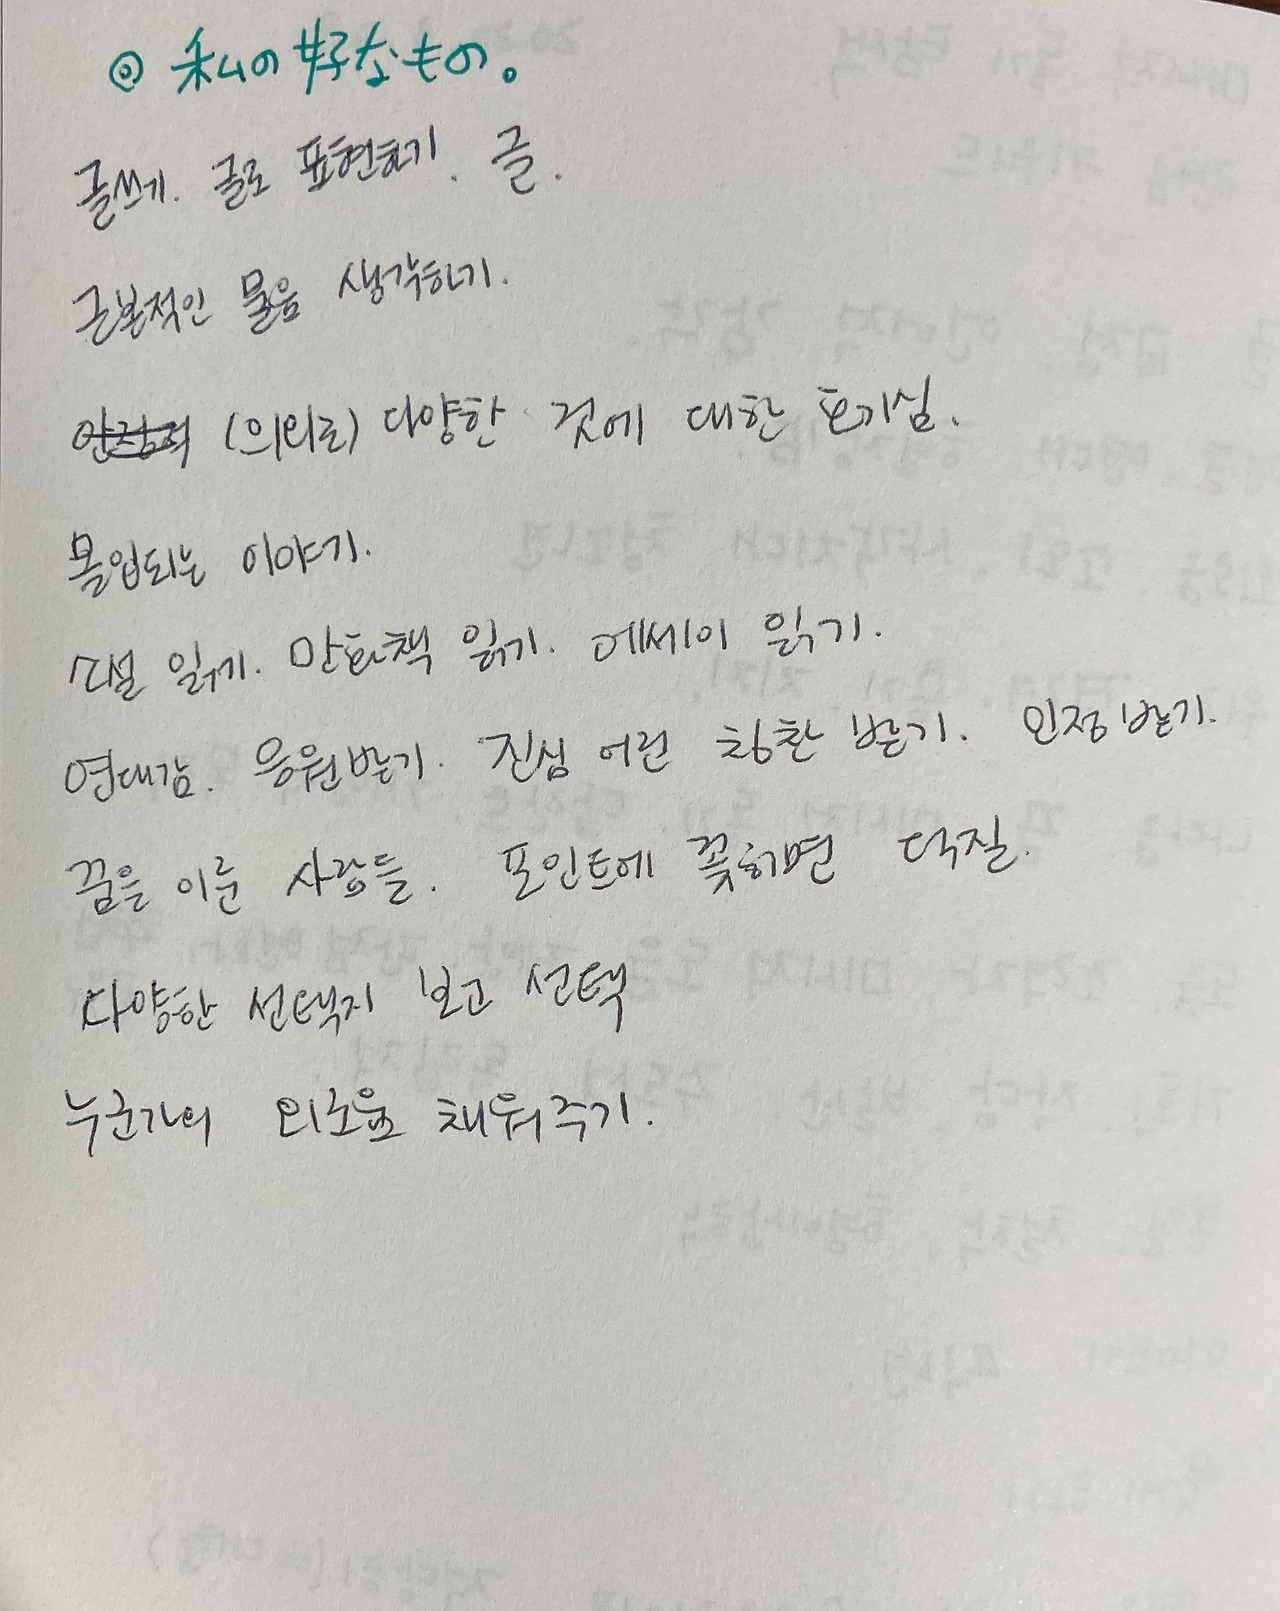 ◎ 私の好なもの。
글쓰기. 글로 표현하기. 글.
근본적인 물음 생각하기.
(의외로) 다양한 것에 대한 호기심.
몰입되는 이야기.
소설 읽기. 만화책 읽기. 에세이 읽기.
연대감. 응원받기. 진심 어린 칭찬 받기. 인정받기.
꿈을 이룬 사람들. 포인트에 꽂히면 덕질.
다양한 선택지 보고 선택
누군가의 외로움 채워주기.